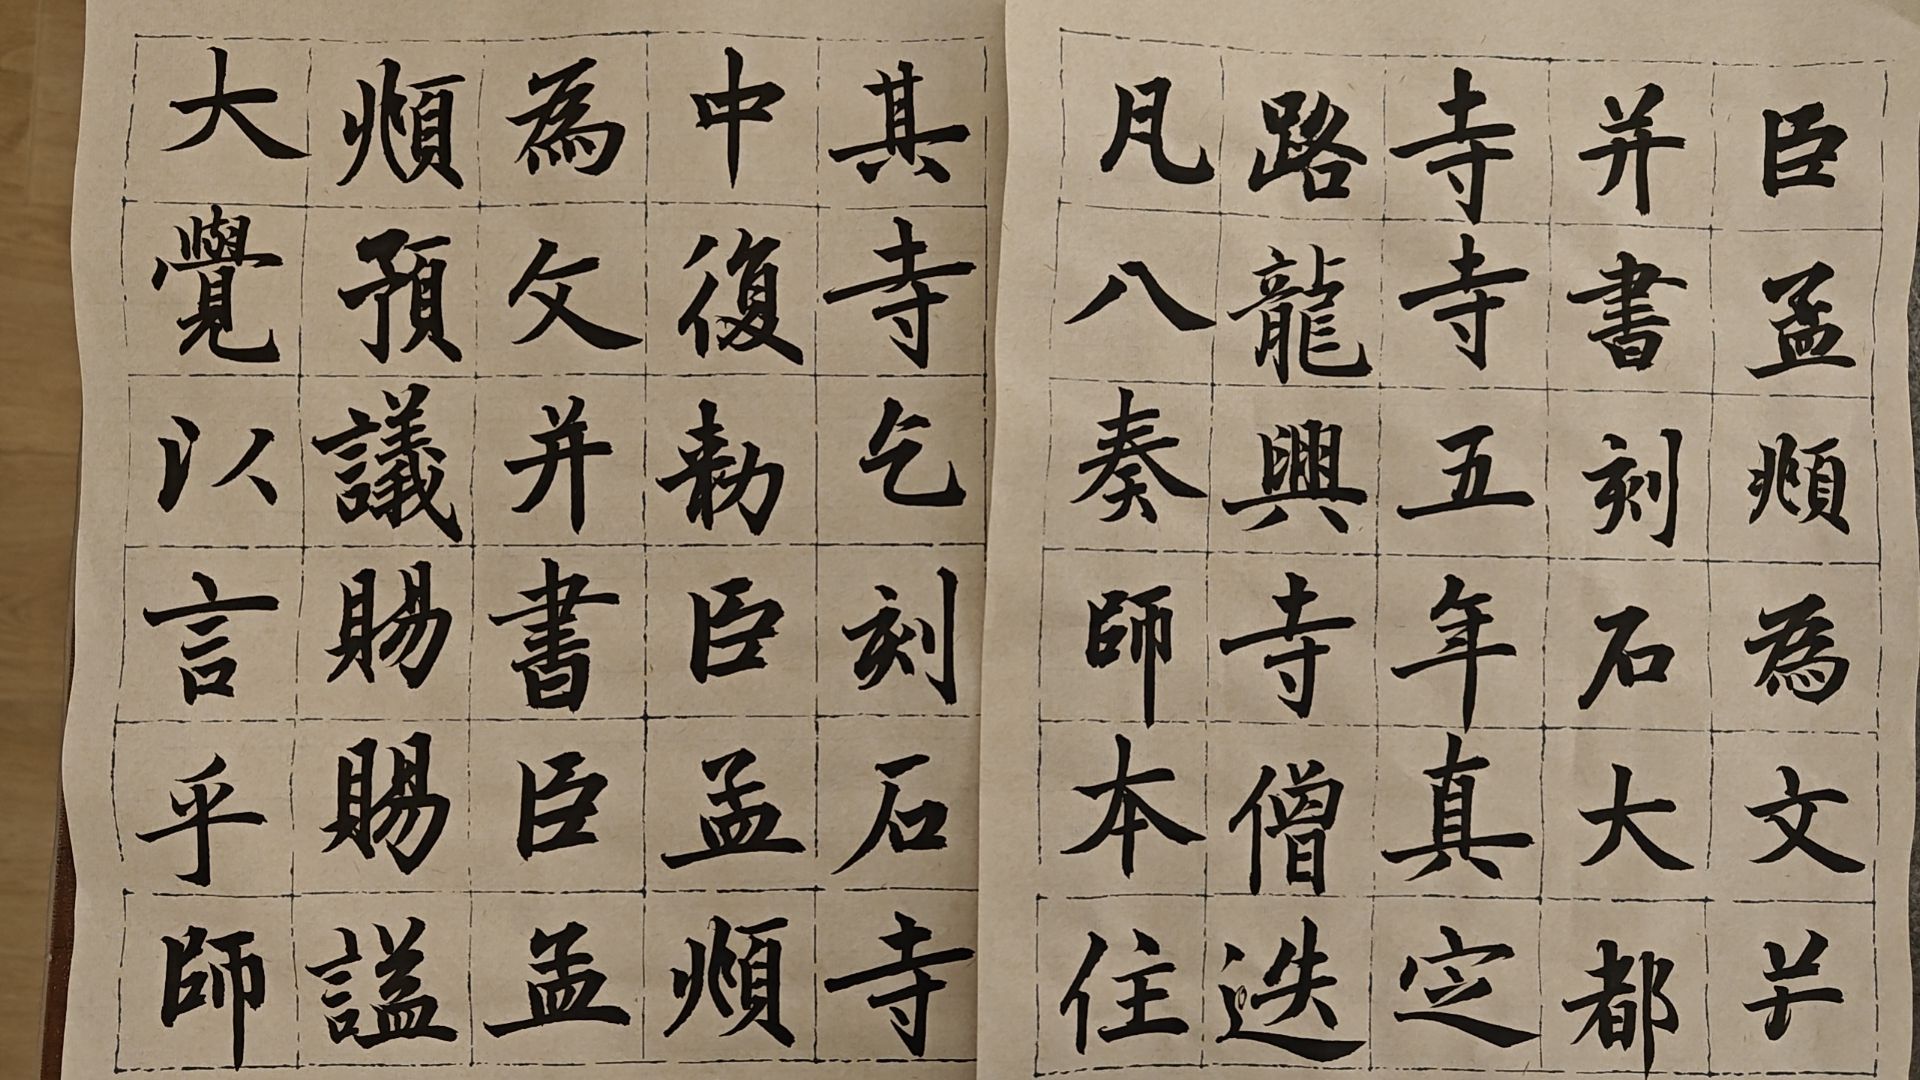 臣孟頫為文
并書刻石大都
寺寺五年真定
路龍興寺僧迭
凡八奏師本住
其寺乞刻石寺
中復勅臣孟頫
為文并書臣孟
頫預議賜賜謚
大覺以言乎師